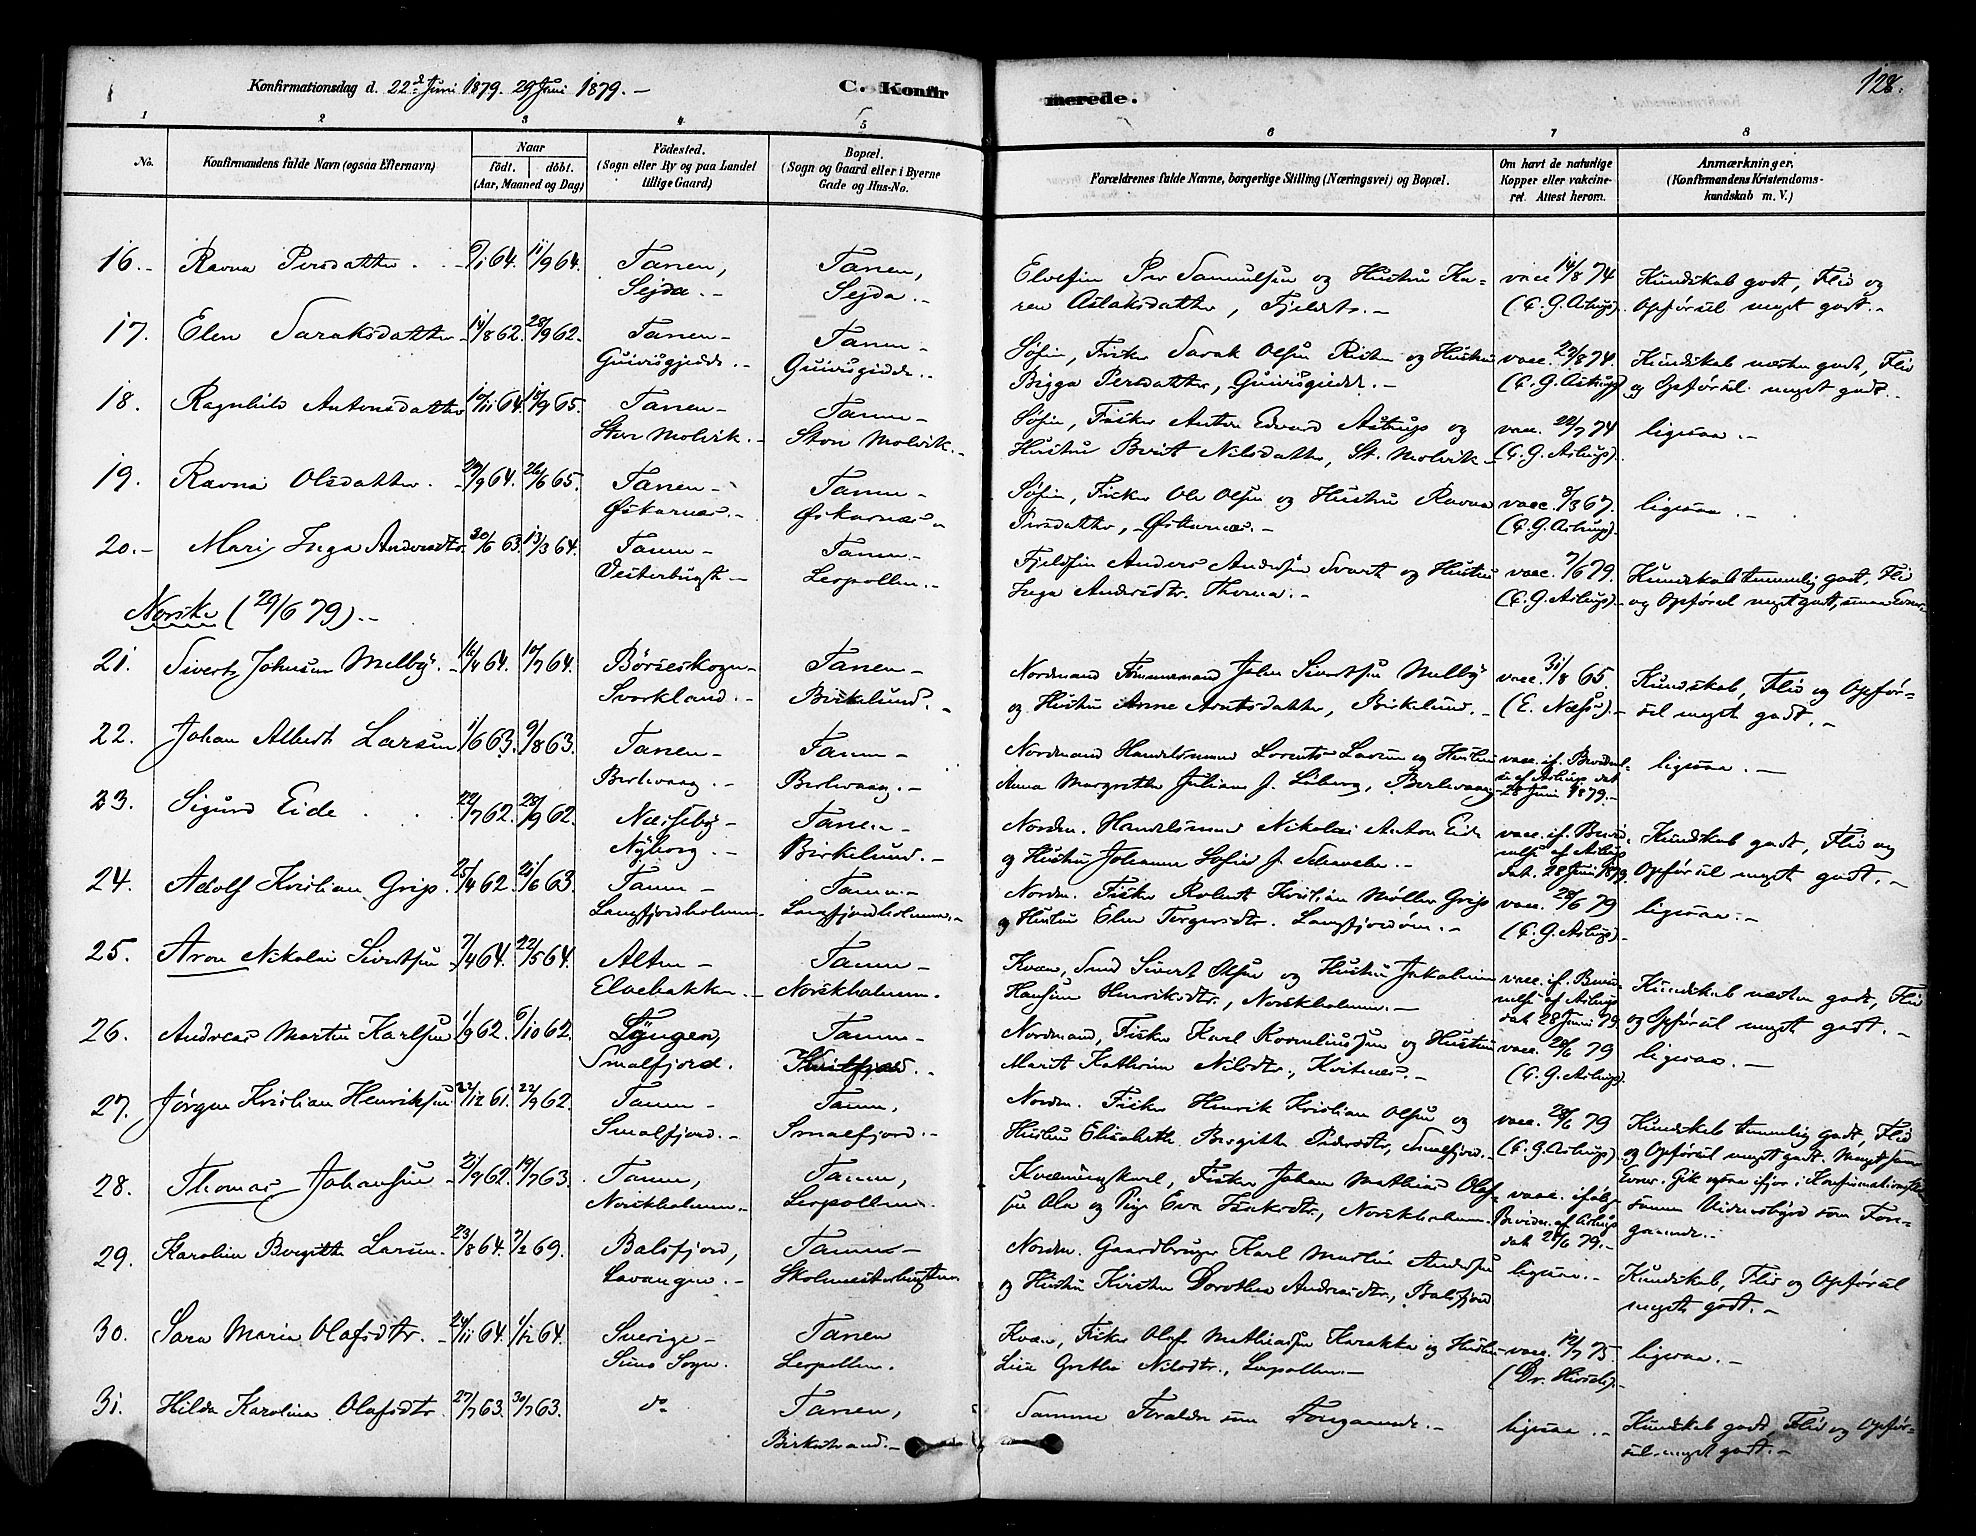 Konfirmationsdag d. 22d Juni 1879. 29 Juni 1879. —
C. Konfirmerede.
128.
1 2 3 4 5 6 7 8
No.
Konfirmandens fulde Navn (ogsaa Efternavn)
Naar
født. døbt.
(Aar, Maaned og Dag)
Fødested.
(Sogn eller By og paa Landet
tillige Gaard)
Bopæl.
(Sogn og Gaard eller i Byerne
Gade og Hus-No.
Forældrenes fulde Navne, borgerlige Stilling (Næringsvei) og Bopæl.
Om havt de naturlige
Kopper eller vakcine-
ret. Attest herom.
Anmærkninger.
(Konfirmandens Kristendoms-
kundskab m. V.)
16. Ravna Persdatter. 9/1 64. 11/9 64. Tanen, Tanen,
Sejda. Sejda.
Elvefin Per Samuelsen og Hustru Ka-
ren Aslaksdatter, Fjeldet. vacc 14/8 74
(C. G. Astrup). Kundskab godt, Flid og
Opførsel meget godt.
17. Elen Saraksdatter 14/8 62. 28/9 62. Tanen Tanen
Guivisgjedde. Guivisgiedde.
Søfin, Fisker Sarak Olsen Risten og Hustru
Bigga Persdatter, Guivisgiedde. vacc. 29/8 74.
(C. G. Astrup) Kundskab næsten godt, Flid
og Opførsel meget godt.
18. Ragnhild Antonsdatter 17/11 64. 17/9 65. Tanen Tanen
Stor Molvik. Stor Molvik.
Søfin, Fisker Anton Edvard Astrup og
Hustru Berit Nilsdatter, St. Molvik vacc. 22/7 74
(C. G. Astrup). ligesaa.
19. Ravna Olsdatter. 29/9 64. 26/6 65. Tanen Tanen
Øskarnæs. Øskarnæs.
Søfin, Fisker Ole Olsen og Hustru Ravna
Persdatter, Øskarnæs. vacc. 8/3 67.
(C. G. Astrup). ligesaa.
20. Mari Inga Andersdtr. 20/6 63. 13/3 64. Tanen Tanen
Vesterbugt Leopollen.
Fjeldfin Anders Andersen Svart og Hustru
Inga Andersdtr. Thoma. vacc. 7/6 79.
(C. G. Astrup). Kundskab temmelig godt, Flid
og Opførsel meget godt, smaa Evner.
Norske (29/6 79).
21. Sivert Johnsen Melby. 16/4 64. 10/7 64. Børseskogn Tanen
Svorkland. Birkelund.
Nordmand Tømmermand John Sivertsen Melby
og Hustru Anne Arntsdatter, Birkelund. vacc. 31/8 65
(E. Næss). Kundskab, Flid og Opfør-
sel meget godt.
22. Johan Albert Larsen 1/6 63. 9/8 63. Tanen Tanen
Berlevaag. Berlevaag.
Nordmand Handelsmand Lorents Larsen og Hustru
Anna Margrethe Juliane f. Loberg, Berlevaag vacc. if. Bevidnel-
se af Astrup dat.
28 Juni 1879. ligesaa.
23. Sigurd Eide 22/7 62. 28/9 62. Næsseby Tanen
Nyborg. Birkelund.
Nordm. Handelsmand Nikolai Anton Eide
og Hustru Johanne Sofie f. Schanche. vacc. if. Bevid-
nelse af Astrup
dat. 28 Juni 1879. Kundskab godt, Flid og
Opførsel meget godt.
24. Adolf Kristian Grip 25/4 62. 21/6 63. Tanen Tanen
Langfjordholmen. Langfjordholmen.
Nordm. Fisker Robert Kristian Møller Grip
og Hustru Elen Torgersdtr. Langfjordøren. vacc. 28/6 79
(C. G. Astrup). ligesaa.
25. Aron Nikolai Sivertsen 7/4 64. 22/5 64. Alten Tanen
Elvebakken. Norskholmen.
Kvæn, Smed Sivert Olsen og Hustru Jakobine
Hansine Henriksdtr., Norskholmen. vacc. if. Bevid-
nelse af Astrup
dat. 28 Juni 79. Kundskab næsten godt, Flid
og Opførsel meget godt.
26. Andreas Martin Karlsen 1/9 62. 6/10 62. Lyngen, Tanen
Smalfjord.
Nordmand, Fisker Karl Korneliussen og Hustru
Marit Kathrine Nilsdtr., Kvitnæs. vacc. 28/6 79
(C. G. Astrup). ligesaa.
27. Jørgen Kristian Henriksen 22/12 61. 22/9 62. Tanen Tanen,
Smalfjord. Smalfjord.
Nordm. Fisker Henrik Kristian Olsen og
Hustru Elisabeth Birgitte Pedersdtr, Smalfjord. vacc. 28/6 79
(C. G. Astrup) Kundskab temmelig godt, Flid
og Opførsel meget godt. Meget smaa
28. Thomas Johansen 21/9 62. 19/7 63. Tanen, Tanen,
Norskholmen. Leopollen.
Kvænungkarl, Fisker Johan Mathias Olaf-
sen Ola og Pige Eva Isaksdtr., Norskholmen. vacc. ifølg.
Bevidn. af Astrup
dat 28/6 79. Evner. Gik ogsaa ifjor i Konfirmation
samme Vidnesbyrd som Fore-
gaaende.
29. Karoline Birgitte Larsen 23/8 64. 7/2 69. Balsfjord, Tanen
Lavangen. Skolmesterbugten.
Nordm. Gaardbruger Karl Martin Andersen
og Hustru Kirsten Dorothea Andreasdtr., Balsfjord ligesaa. Kundskab, Flid og Opførsel
meget godt.
30. Sara Maria Olafsdtr. 24/11 64. 1/12 64. Sverige Tanen
Sogn. Leopollen.
Kvæn, Fisker Olaf Mathiassen Karakka og Hustru
Lise Grethe Nilsdtr., Leopollen. vacc. 12/7 75.
(Dr. Hirsch). ligesaa.
31. Hilda Karolina Olafsdtr. 27/7 63. 30/7 63. do Tanen,
Birkestrand.
Samme Forældre som Foregaaende. ligesaa. Kundskab godt, Flid og Opfør-
sel meget godt.